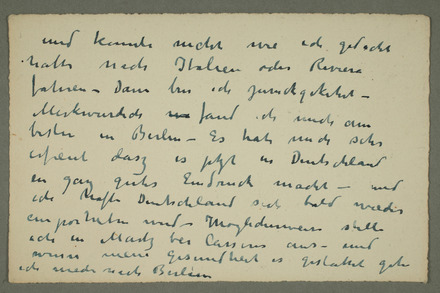 und konnte nicht wie ich gedacht
hatte nach Italien oder Riviera
fahren – Dann bin ich zurückgekehrt –
Merkwürdich fand ich mich am
besten in Berlin – Es hat mich sehr
erfreut dasz es jetzt in Deutschland
en ganz gutes Eindruck macht – und
ich hoffe Deutschland sich bald wieder
und – Möglicherweise stelle
ich in März bei Cassirer aus – und
wenn meine Gesundheit es gestattet gehe
ich wieder nach Berlin